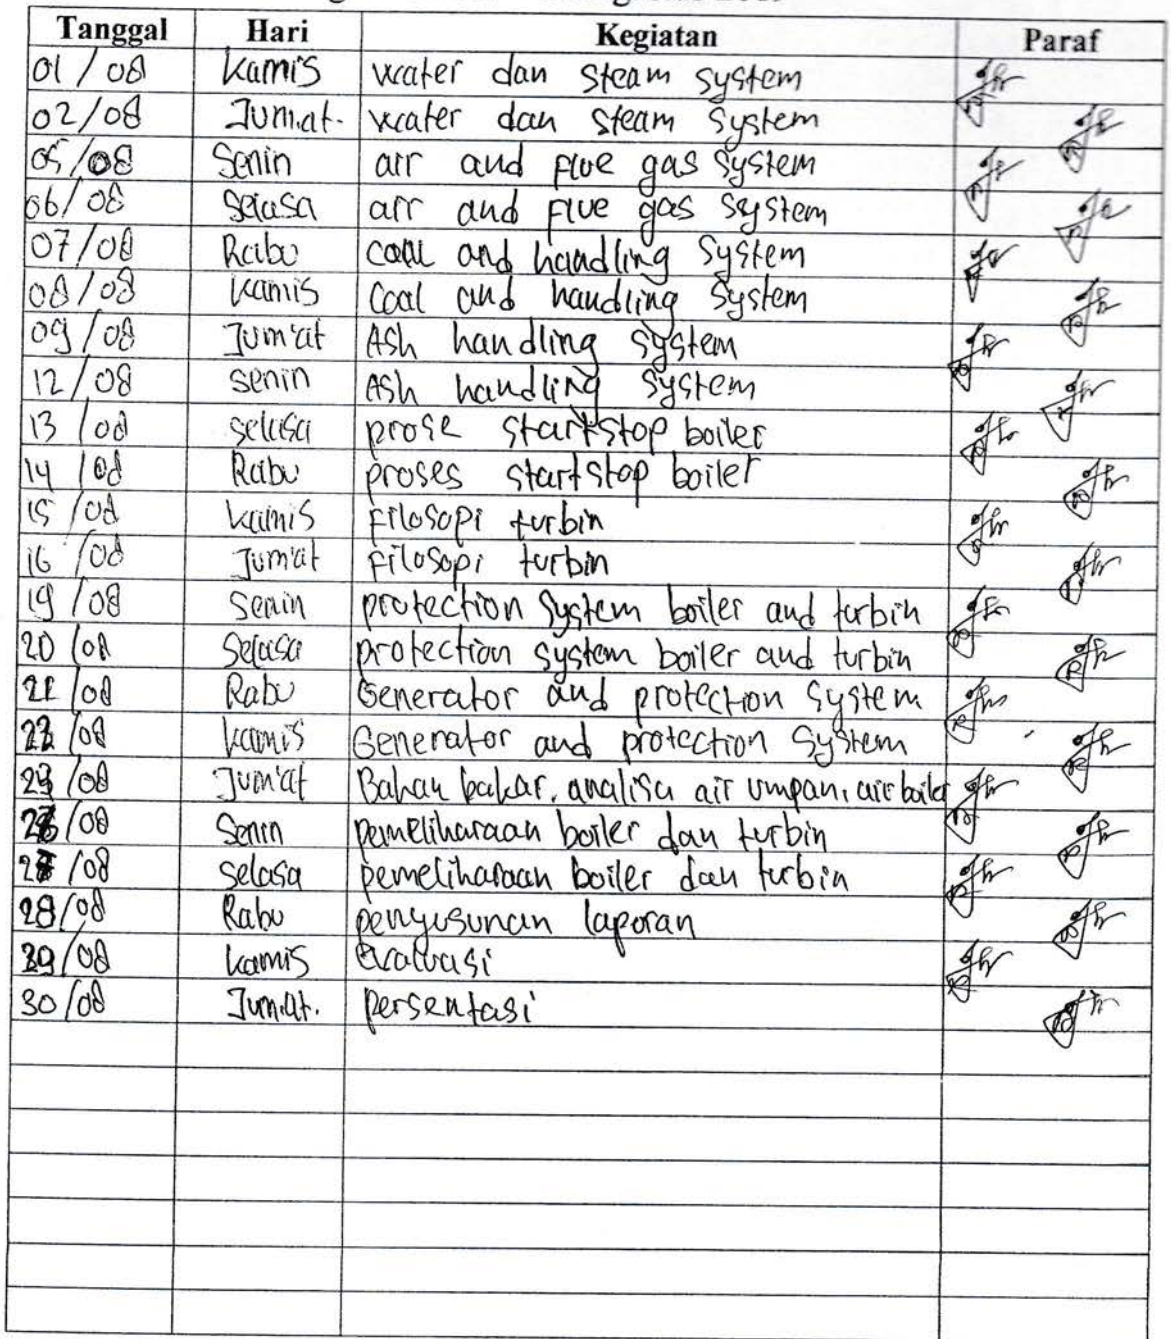 Tanggal Hari Kegiatan Paraf
01 / 08 Kamis water dan steam system
02/08 Jum'at. water dan steam system
05/08 Senin air and flue gas system
06/08 Selasa air and flue gas system
07/08 Rabu coal and handling system
08/08 kamis coal and handling system
09/08 Jum'at Ash handling system
12/08 senin Ash handling system
13/08 selasa prose start stop boiler
14/08 Rabu proses start stop boiler
15/08 kamis filosopi turbin
16/08 Jum'at filosopi turbin
19/08 Senin protection system boiler and turbin
20/08 Selasa protection system boiler and turbin
21/08 Rabu Generator and protection system
22/08 kamis Generator and protection system
23/08 Jum'at Bahan bakar, analisa air umpan, air boiler
26/08 Senin pemeliharaan boiler dan turbin
27/08 selasa pemeliharaan boiler dan turbin
28/08 Rabu penyusunan laporan
29/08 kamis Evaluasi
30/08 Jum'at. persentasi